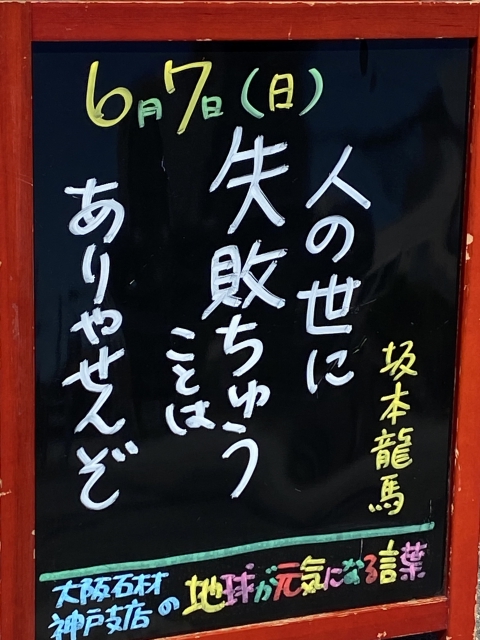 6月7日(日)
人の世に
失敗ちゅう
ことは
ありやせんぞ
坂本龍馬
大阪石材
神戸支店の地球が元気になる言葉